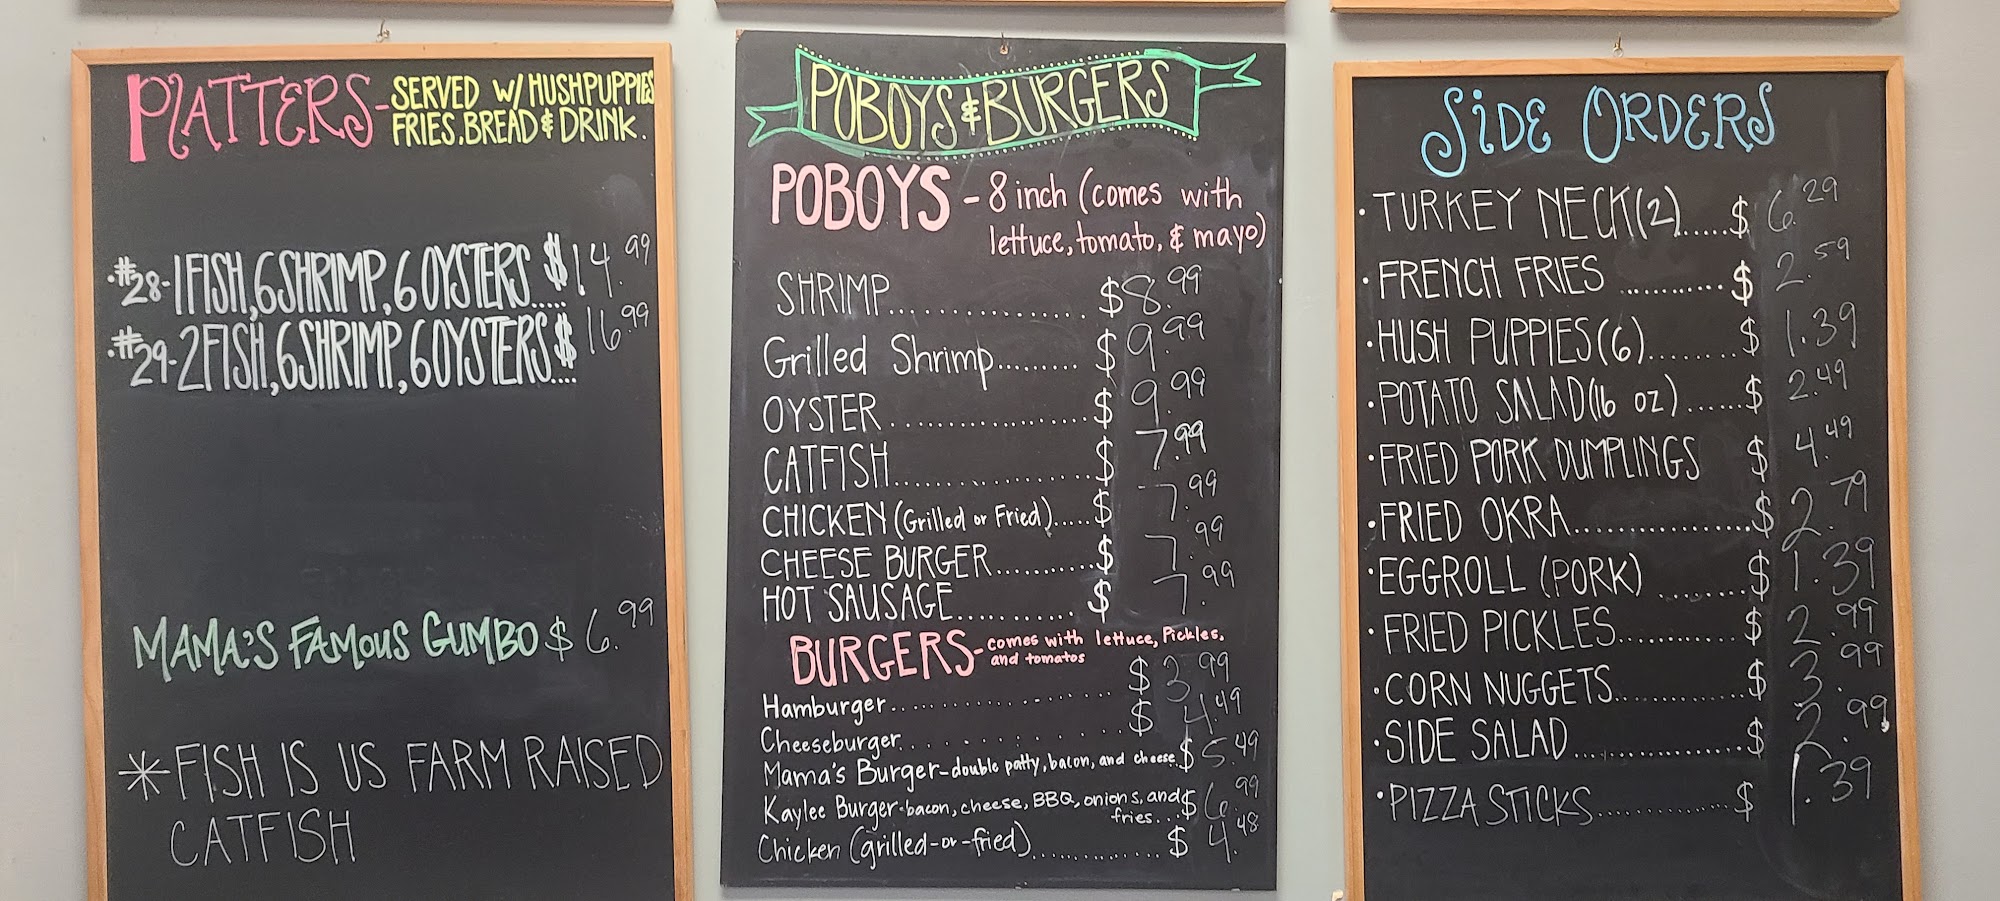 PLATTERS - SERVED W/ HUSHPUPPIES
FRIES, BREAD & DRINK.
·#28-1 FISH, 6 SHRIMP, 6 OYSTERS..... $14.99
·#29-2 FISH, 6 SHRIMP, 6 OYSTERS.... $16.99
MAMA'S FAMOUS GUMBO $6.99
* FISH IS US FARM RAISED
CATFISH
POBOYS & BURGERS
POBOYS - 8 inch (comes with
lettuce, tomato, & mayo)
SHRIMP................ $8.99
Grilled Shrimp........ $9.99
OYSTER ................ $9.99
CATFISH.................. $7.99
CHICKEN (Grilled or Fried)..... $7.99
CHEESE BURGER........... $7.99
HOT SAUSAGE........... $7.99
BURGERS - comes with lettuce, Pickles,
and tomatos
Hamburger................ $3.99
Cheeseburger............ $4.49
Mama's Burger-double patty, bacon, and cheese $5.49
Kaylee Burger-bacon, cheese, BBQ, onions, and $6.99
fries...
Chicken (grilled-or-fried).............. $4.48
SIDE ORDERS
·TURKEY NECK(2)...... $6.29
·FRENCH FRIES ........... $2.59
·HUSH PUPPIES(6)........ $1.39
·POTATO SALAD(16 oz)...... $2.49
·FRIED PORK DUMPLINGS $4.49
·FRIED OKRA................. $2.79
·EGGROLL (PORK) ........ $1.39
·FRIED PICKLES........... $2.99
·CORN NUGGETS............ $3.99
·SIDE SALAD............... $2.99
·PIZZA STICKS.............. $1.39